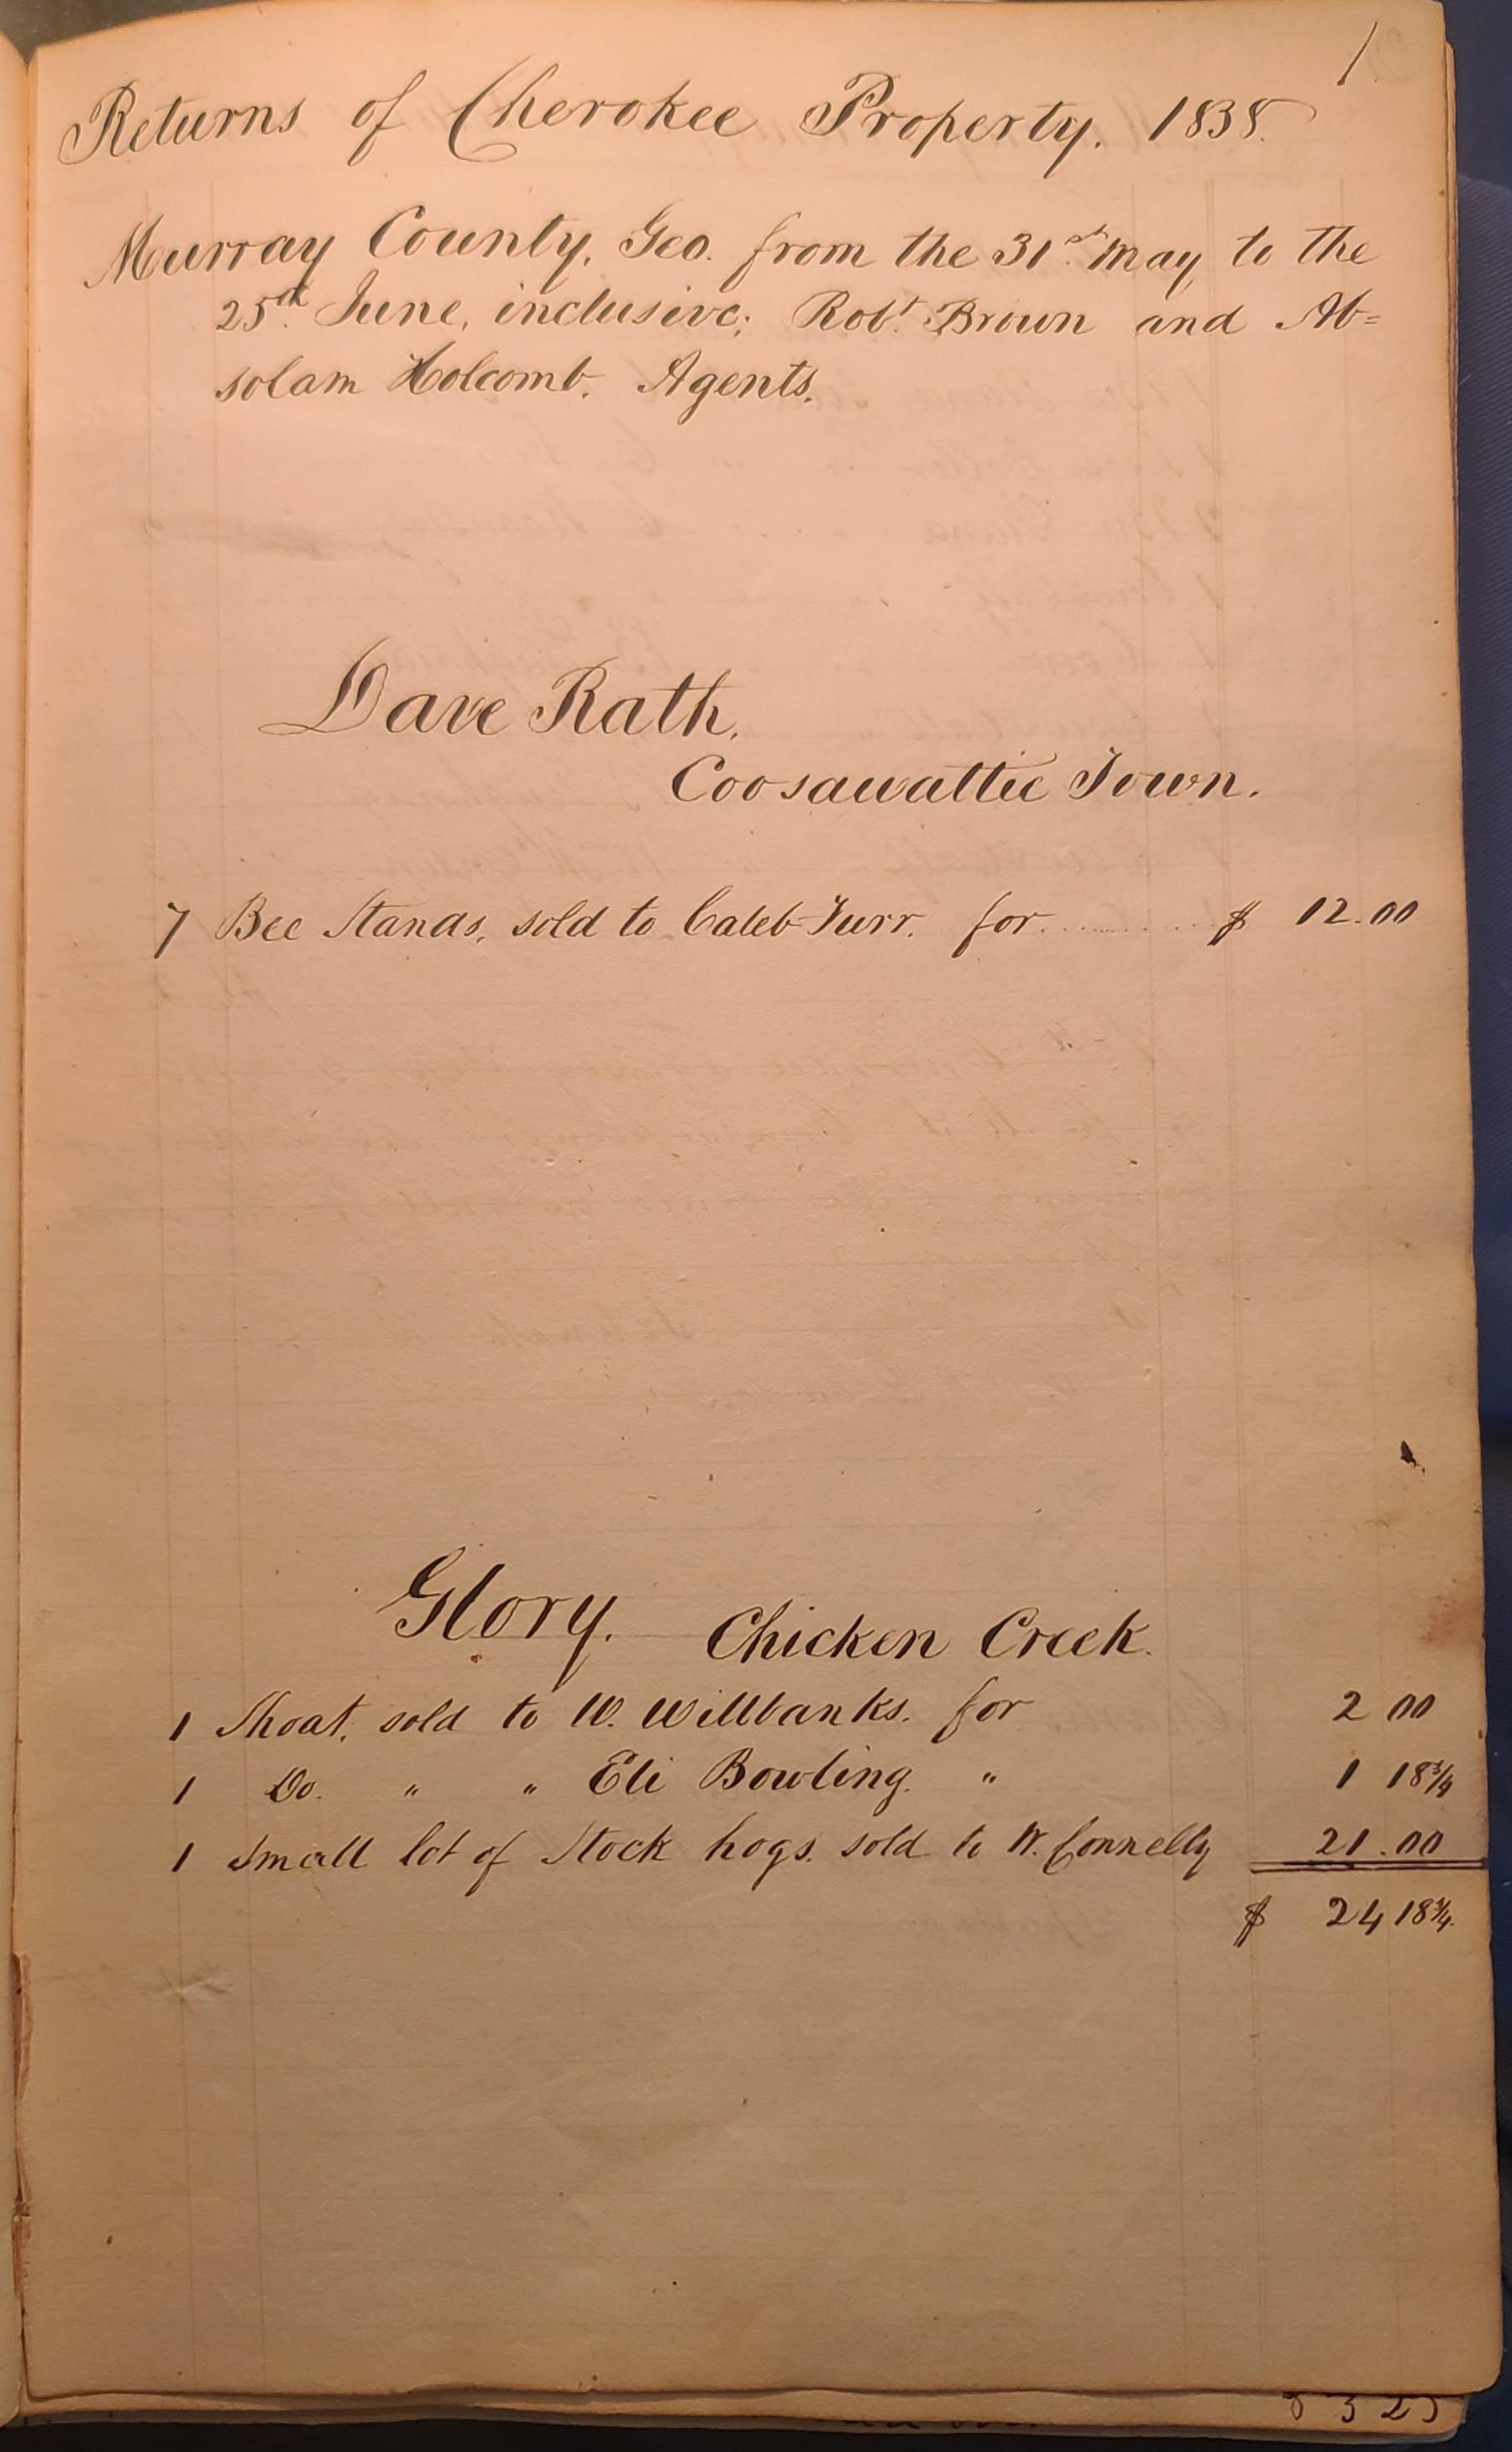 1
Returns of Cherokee Property. 1838.
Murray County, Geo. from the 31st May to the
25th June, inclusive; Robt. Brown and Ab=
solam Holcomb. Agents.
Dave Rath.
Coosawattie Town.
7 Bee Stands, sold to Caleb Furr. for.......... $ 12.00
Glory. Chicken Creek.
1 Shoat, sold to W. Willbanks. for 2 00
1 Do. " " Eli Bowling. " 1 18 3/4
1 Small lot of Stock hogs. sold to W. Connelly 21.00
$ 24 18 3/4